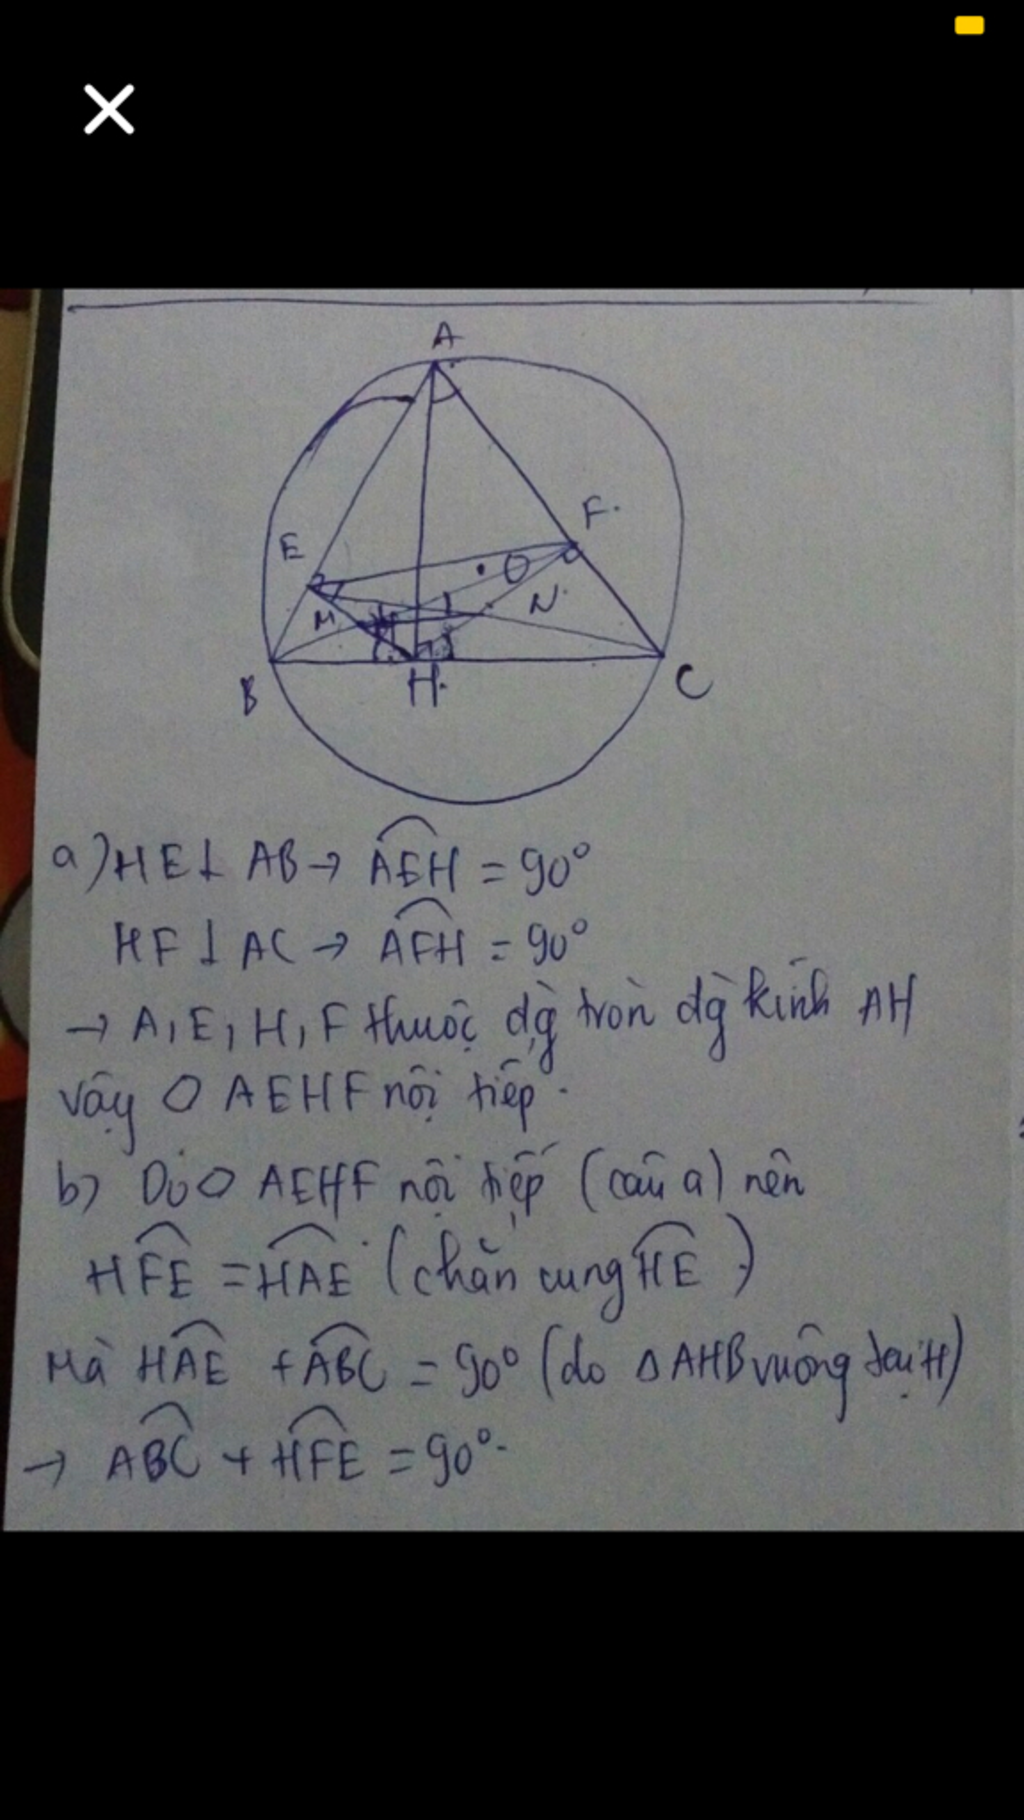 A
E
F.
O
M
I
N.
B
H.
C
a) HE ⊥ AB → AEH = 90°
HF ⊥ AC → AFH = 90°
→ A, E, H, F thuộc đg tròn đg kính AH
vậy ▱ AEHF nội tiếp.
b) Do ▱ AEHF nội tiếp (câu a) nên
HFE = HAE (chắn cung HE)
Mà HAE + ABC = 90° (do Δ AHB vuông tại H)
→ ABC + HFE = 90°.